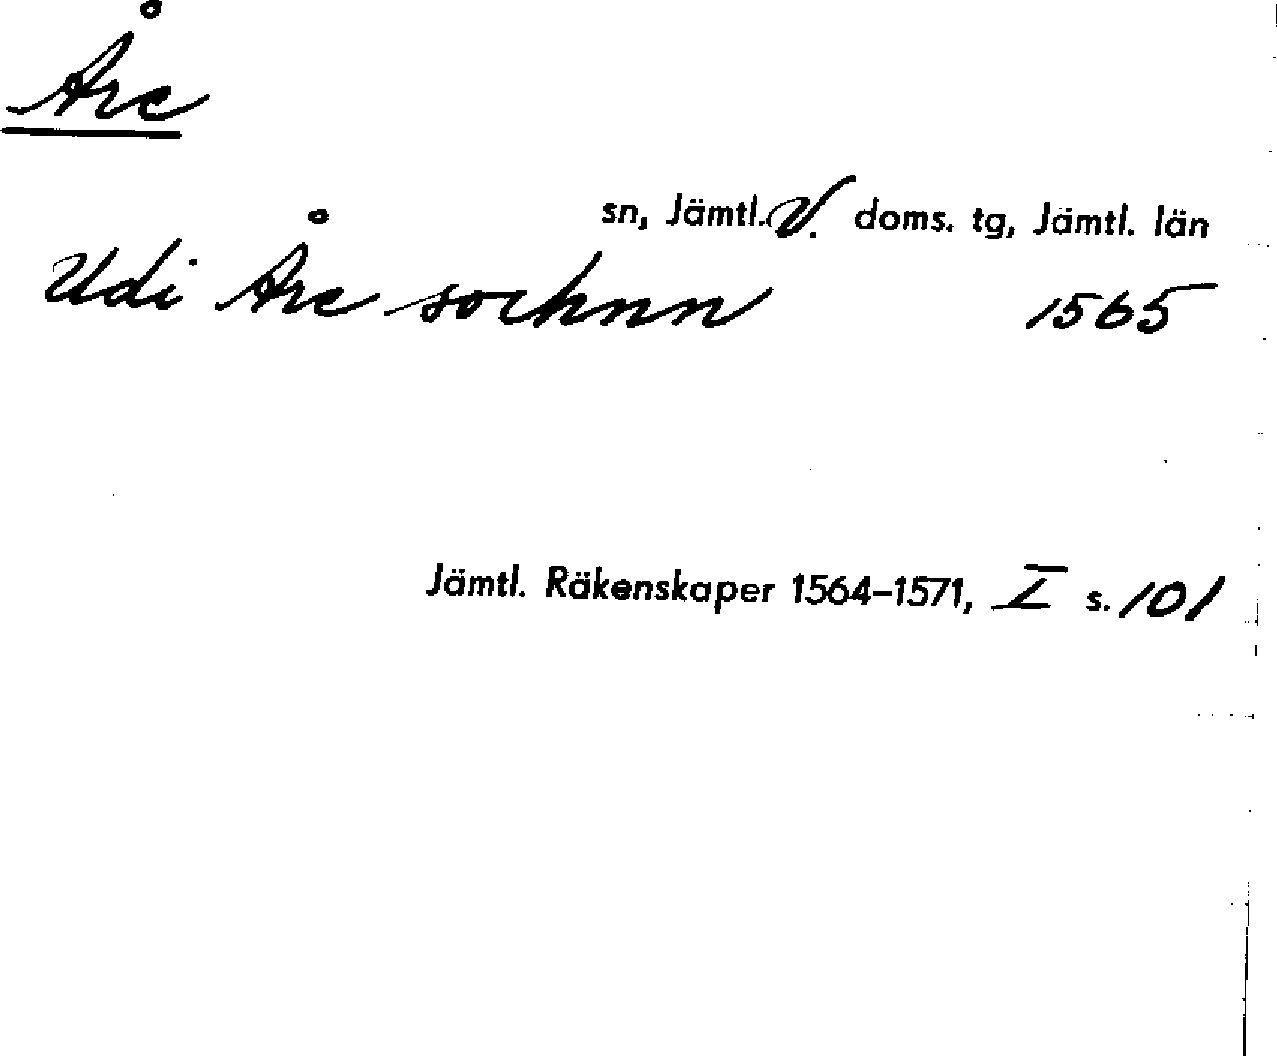 Åre
sn, Jämtl. V. doms. tg, Jämtl. län
Udi Åre sochnn 1565
Jämtl. Räkenskaper 1564-1571, I s. 101